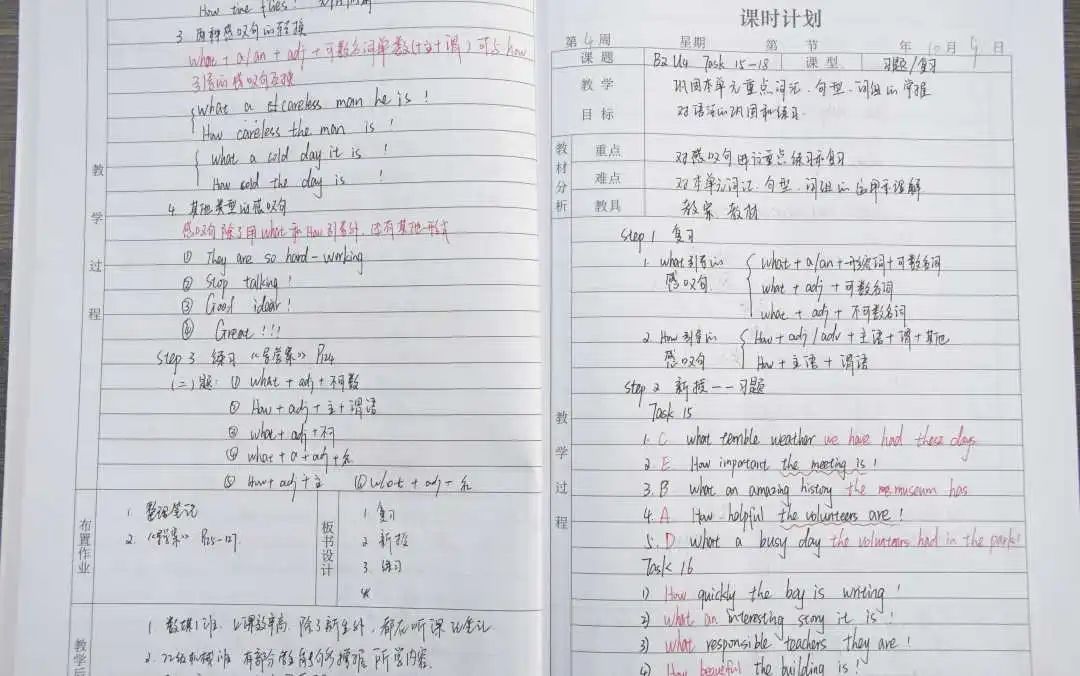 How time flies!
3. 两种感叹句的转换
what + a/an + adj + 可数名词单数(+主+谓) 可与 how
引导的感叹句互换
what a careless man he is !
How careless the man is !
what a cold day it is !
How cold the day is !
4. 其他类型的感叹句
感叹句除了用 what 和 How 引导外, 还有其他形式
① They are so hard-working
② Stop talking!
③ Good idear!
④ Great!!!
Step 3 练习 《学案》 P124
(二) 题: ① what + adj + 不可数
② How + adj + 主 + 谓语
③ what + adj + 不可
④ what + a + adj + 名
⑤ How + adj + 主 ⑥ what + adj + 名
教学过程
布置作业
1. 整理笔记
2. 《学案》 P125-127.
板书设计
1. 复习
2. 新授
3. 练习
教学后
1. 数媒1班 上课效率高, 除了新生外, 都在听课记笔记
2. 机械班 有部分 掌握 所学内容.
课时计划
第 4 周 星期 第 节 年 10 月 9 日
课题 B2 U4 Task 15-18 课型 习题/复习
教学目标 巩固本单元重点词汇、句型、词组的掌握
对语法的巩固和练习.
教材分析
重点 对感叹句进行重点练习和复习
难点 对本单元词汇、句型、词组的应用和理解
教具 教案 教材
Step 1 复习
1. what引导的感叹句
what + a/an + 形容词 + 可数名词
what + adj + 可数名词
what + adj + 不可数名词
2. How引导的感叹句
How + adj/adv + 主语 + 谓 + 其他
How + 主语 + 谓语
step 2 新授——习题
Task 15
1. C what terrible weather we have had these days
2. E How important the meeting is !
3. B what an amazing history the museum has
4. A How helpful the volunteers are !
5. D what a busy day the volunteers had in the park!
教学过程
Task 16
1) How quickly the boy is writing !
2) what an interesting story it is !
3) what responsible teachers they are !
4) How beautiful the building is !